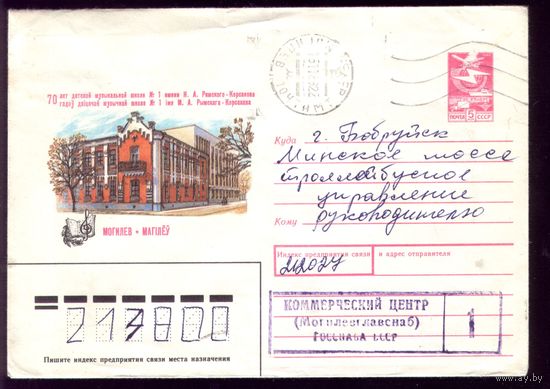 70 лет детской музыкальной школе № 1 имени Н. А. Римского-Корсакова
гадоў дзіцячай музычнай школе № 1 імя М. А. Рымскага-Корсакава
ПОЧТА 5 СССР
Куда г. Бобруйск
Минское шоссе
троллейбусное
управление
Кому руководителю
МОГИЛЕВ • МАГІЛЁЎ
Индекс предприятия связи и адрес отправителя
212027
КОММЕРЧЕСКИЙ ЦЕНТР
(Могилевглавснаб)
ГОССНАБА СССР
213800
Пишите индекс предприятия связи места назначения
www.ay.by